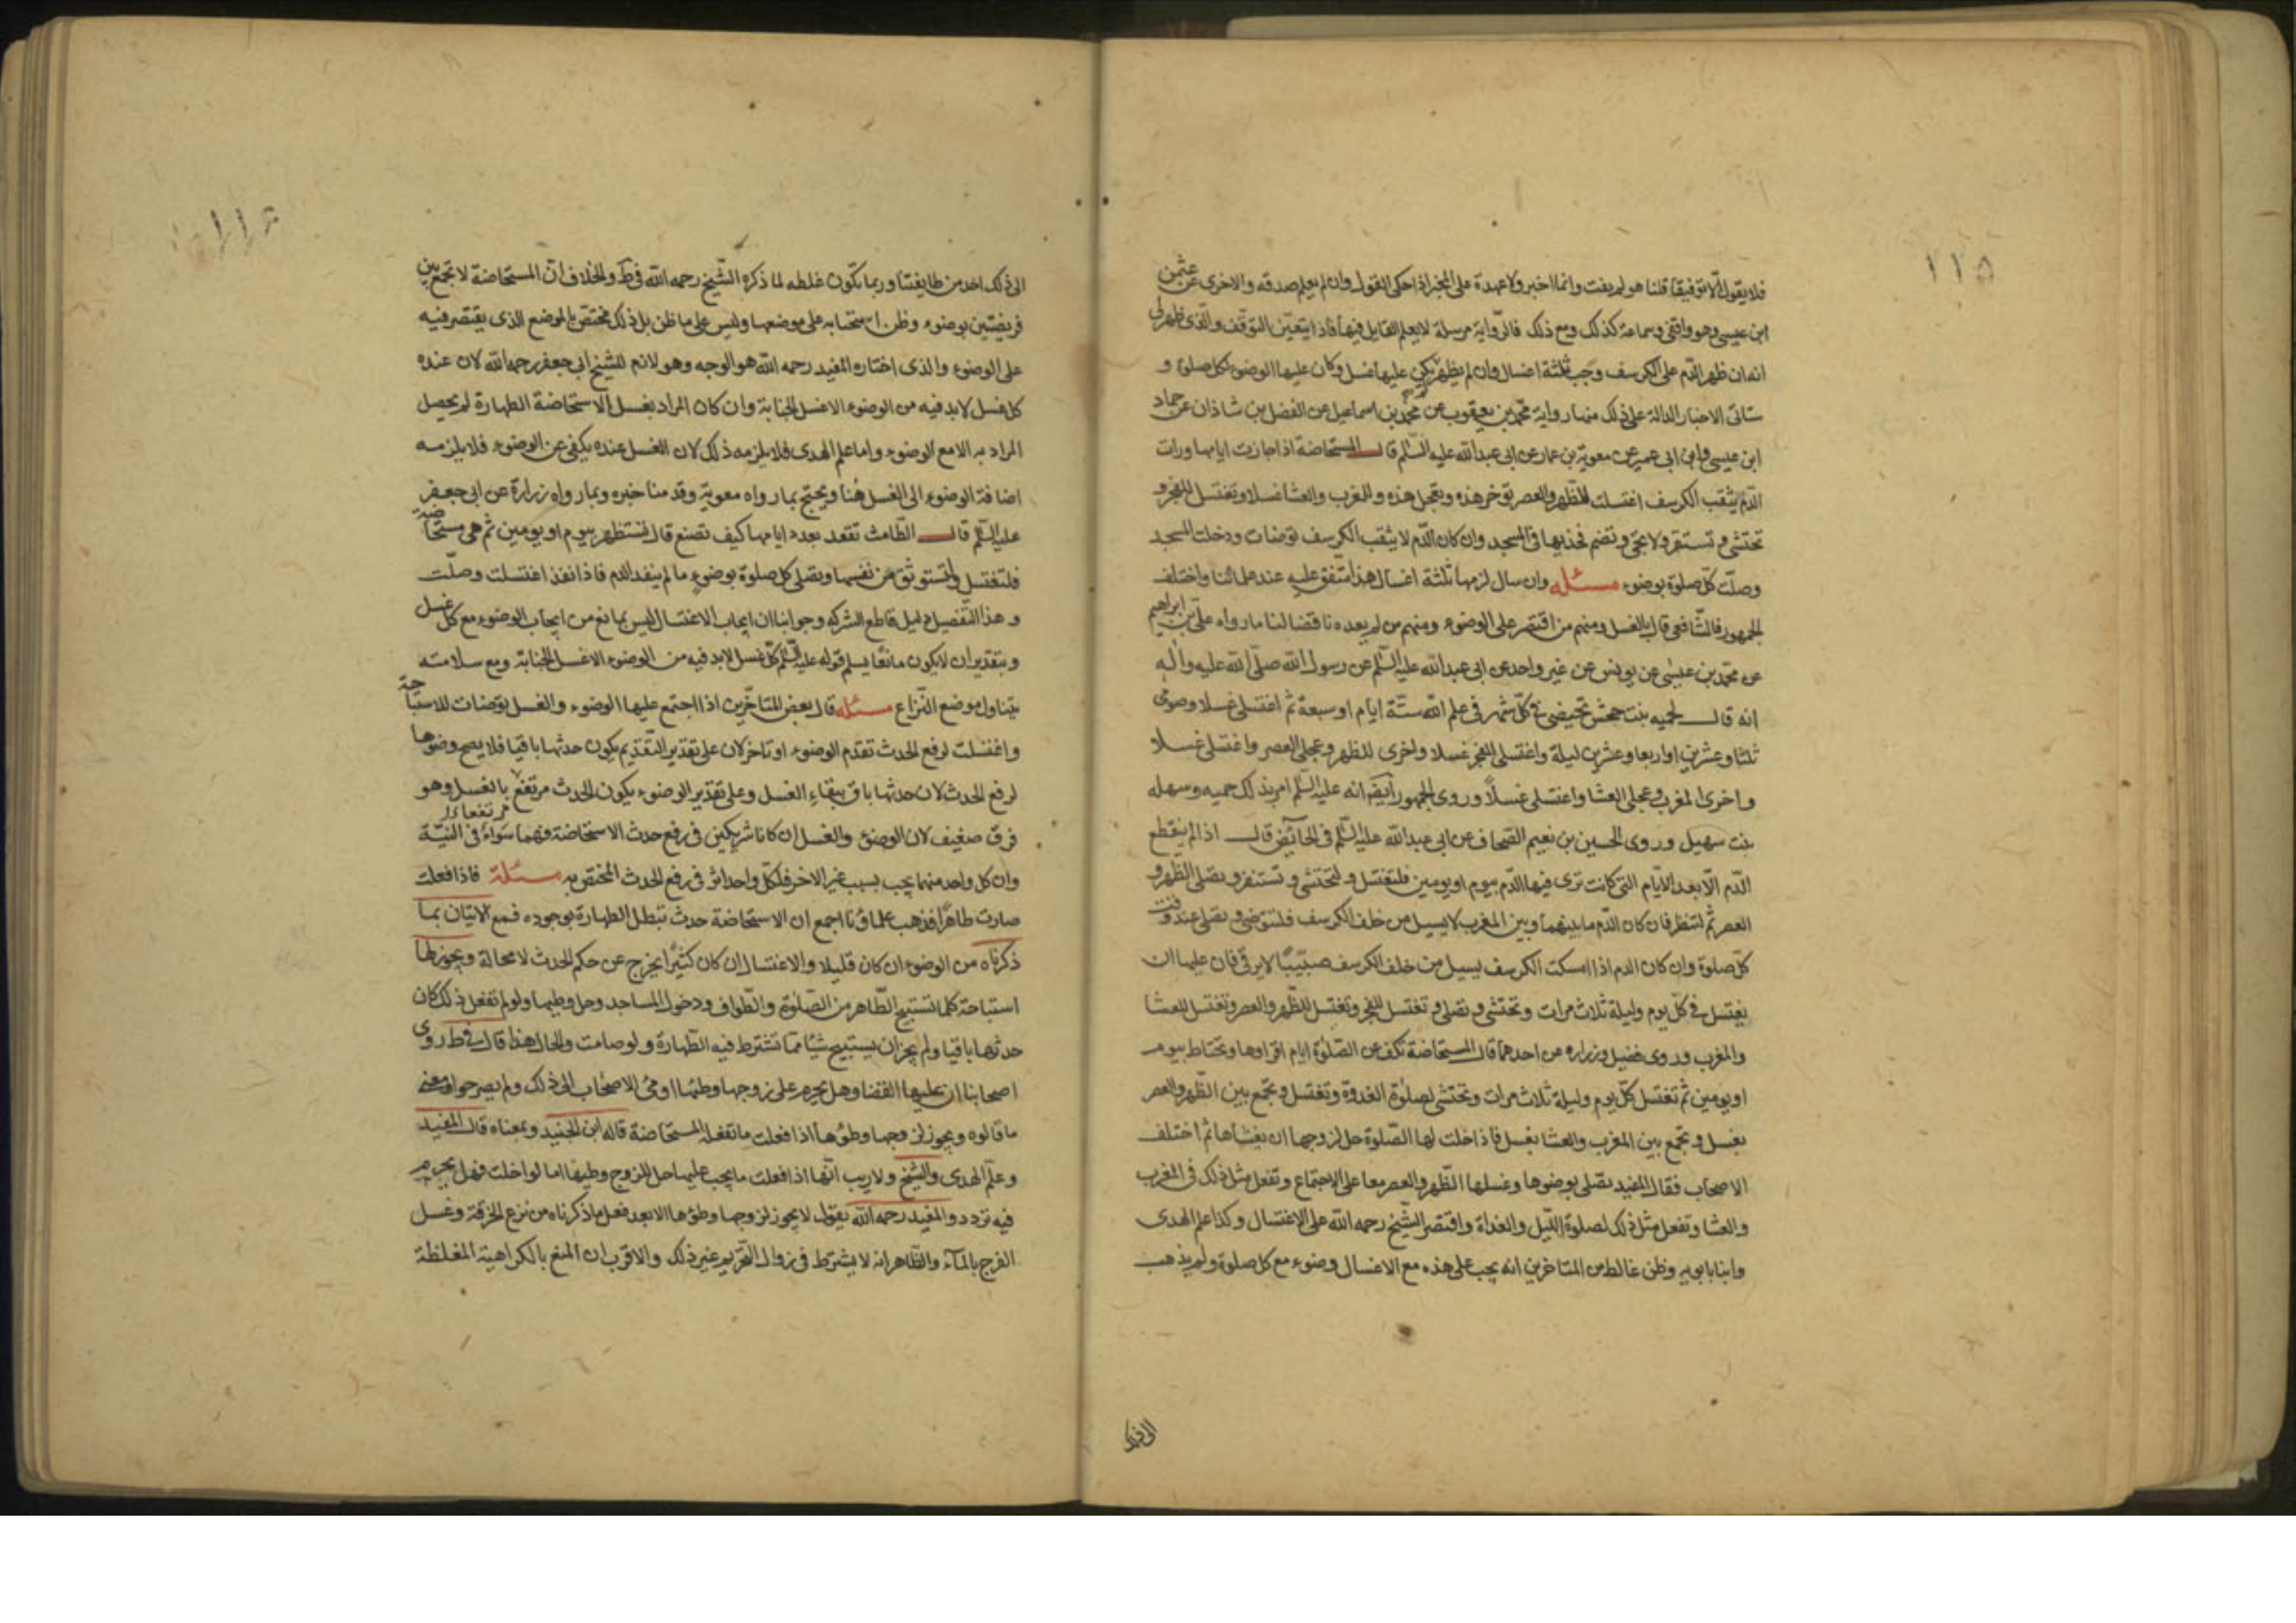 ١١٥
فلا يقول الا توقيفا قلنا هو لم يفت وانما اخبر ولا عهدة على المخبر اذا حكى القول وان لم يعلم صدقه والاخرى عن عثمن
ابن عيسى وهو واقفى وسماعة كذلك ومع ذلك فالرواية مرسلة لا يعلم القايل فيها فاذا يتعين التوقف والذى ظهر لى
انه ان ظهر الدم على الكرسف وجب ثلثة اغسال وان لم يظهر لم يكن عليها غسل وكان عليها الوضوء لكل صلوة و
ستاتى الاخبار الدالة على ذلك منها رواية محمد بن يعقوب عن محمد بن اسماعيل عن الفضل بن شاذان عن حماد
ابن عيسى وابن ابى عمير عن معوية بن عمار عن ابى عبد الله عليه السلم قال المستحاضة اذا جازت ايامها ورات
الدم يثقب الكرسف اغتسلت للظهر والعصر توخر هذه وتعجل هذه وللمغرب والعشا غسلا وتغتسل للفجر و
تحتشى وتستثفر ولا تحنى وتضم فخذيها فى المسجد وان كان الدم لا يثقب الكرسف توضات ودخلت المسجد
وصلت كل صلوة بوضوء مسئله وان سال لزمها ثلثة اغسال هذا متفق عليه عند علمائنا واختلف
الجمهور فالشافعى قال بالغسل ومنهم من اقتصر على الوضوء ومنهم من لم يعده ناقضا لنا ما رواه على بن ابراهيم
عن محمد بن عيسى عن يونس عن غير واحد عن ابى عبد الله عليه السلم عن رسول الله صلى الله عليه واله
انه قال لحميه بنت جحش تحيضى فى كل شهر فى علم الله ستة ايام او سبعة ثم اغتسلى غسلا وصومى
ثلثا وعشرين او اربعا وعشرين ليلة واغتسلى للفجر غسلا واخرى للظهر وعجلى العصر واغتسلى غسلا
واخرى المغرب وعجلى العشا واغتسلى غسلاً وروى الجمهور ايضا انه عليه السلم امر بذلك حميه وسهله
بنت سهيل وروى الحسين بن نعيم الصحاف عن ابى عبد الله عليه السلم فى الحائض قال اذا لم ينقطع
الدم الا بعد الايام التى كانت ترى فيها الدم بيوم او يومين فلتغتسل ولتحتشى وتستثفر وتصلى الظهر و
العصر ثم لتنظر فان كان الدم ما بينهما وبين المغرب لا يسيل من خلف الكرسف فلتتوضى وتصلى عند وقت
كل صلوة وان كان الدم اذا امسكت الكرسف يسيل من خلف الكرسف صبيبًا لا يرقى فان عليها ان
تغتسل فى كل يوم وليلة ثلاث مرات وتحتشى وتصلى وتغتسل للفجر وتغتسل للظهر والعصر وتغتسل للعشا
والمغرب وروى فضيل وزراره عن احدهما قال المستحاضة تكف عن الصلوة ايام اقراوها وتحتاط بيوم
او يومين ثم تغتسل كل يوم وليلة ثلاث مرات وتحتشى لصلوة الغدوة وتغتسل وتجمع بين الظهر والعصر
بغسل وتجمع بين المغرب والعشا بغسل فاذا حلت لها الصلوة حل لزوجها ان يغشاها ثم اختلف
الاصحاب فقال المفيد تصلى بوضوها وغسلها الظهر والعصر معا على الاجتماع وتفعل مثل ذلك فى المغرب
والعشا وتفعل مثل ذلك لصلوة الليل والغداة واقتصر الشيخ رحمه الله على الاغتسال وكذا علم الهدى
وابنا بابويه وظن غالط من المتاخرين انه يجب على هذه مع الاغسال وضوء مع كل صلوة ولم يذهب
الى ذلك احد من طايفتنا وربما تكون غلطه لما ذكره الشيخ رحمه الله فى ط والخلاف ان المستحاضة لا تجمع بين
فريضتين بوضوء وظن انسحابه على موضعها وليس على ما ظن بل ذلك مختص بالموضع الذى يقتصر فيه
على الوضوء والذى اختاره المفيد رحمه الله هو الوجه وهو لازم للشيخ ابى جعفر رحمه الله لان عنده
كل غسل لابد فيه من الوضوء الا غسل الجنابة وان كان المراد بغسل الاستحاضة الطهارة لم يحصل
المراد به الا مع الوضوء واما علم الهدى فلا يلزمه ذلك لان الغسل عنده يكفى عن الوضوء فلا يلزمه
اضافة الوضوء الى الغسل هنا ويحتج بما رواه معوية وقد منا خبره وبما رواه زرارة عن ابى جعفر
عليه السلم قال الطامث تقعد بعدد ايامها كيف تصنع قال تستظهر بيوم او يومين ثم هى مستحاضة
فلتغتسل ولتستوثق من نفسها وتصلى كل صلوة بوضوء ما لم ينفد الدم فاذا نفذ اغتسلت وصلت
وهذا التفصيل دليل قاطع الشركه وجوابنا ان ايجاب الاغتسال ليس بمانع من ايجاب الوضوء مع كل غسل
وبتقدير ان لا يكون مانعا يسلم قوله عليه السلم كل غسل لابد فيه من الوضوء الا غسل الجنابة ومع سلامته
يتناول موضع النزاع مسئله قال بعض المتاخرين اذا اجتمع عليها الوضوء والغسل توضات للاستباحة
واغتسلت لرفع الحدث تقدم الوضوء او تاخر لان على تقدير التقديم يكون حدثها باقيا فلا يصح وضوها
لرفع الحدث لان حدثها باق ببقاء الغسل وعلى تقدير الوضوء يكون الحدث مرتفع بالغسل وهو
فرق ضعيف لان الوضوء والغسل ان كانا شريكين فى رفع حدث الاستحاضة فهما سواء فى النية
وان كل واحد منهما يجب بسبب غير الاخر فلكل واحد اثر فى رفع الحدث المختص به مسئلة فاذا فعلت
صارت طاهرًا فذهب علماؤنا اجمع ان الاستحاضة حدث تبطل الطهارة بوجوده فمع الاتيان بما
ذكرناه من الوضوء ان كان قليلا والاغتسال ان كان كثيرًا يخرج عن حكم الحدث لا محالة ويجوز لها
استباحة كلما تستبيح الطاهر من الصلوة والطواف ودخول المساجد وحل وطيها ولو لم تفعل ذلك كان
حدثها باقيا ولم يجز ان يستبيح شيًا مما تشترط فيه الطهارة ولو صامت والحال هذا قال فى ط روى
اصحابنا ان عليها القضا وهل يحرم على زوجها وطئها اومئ الاصحاب الى ذلك ولم يصرحوا فمعنى
ما قالوه ويجوز لزوجها وطؤها اذا فعلت ما تفعله المستحاضة قاله ابن الجنيد وبمعناه قال المفيد
وعلم الهدى والشيخ ولا ريب انها اذا فعلت ما يجب عليها حل للزوج وطيها اما لو اخلت فهل يحرم
فيه تردد والمفيد رحمه الله يقول لا يجوز لزوجها وطؤها الا بعد فعل ما ذكرناه من نزع الخرقة وغسل
الفرج بالمآء والظاهر انه لا يشترط فى زوال التحريم غير ذلك والاقرب ان المنع بالكراهية المغلظة